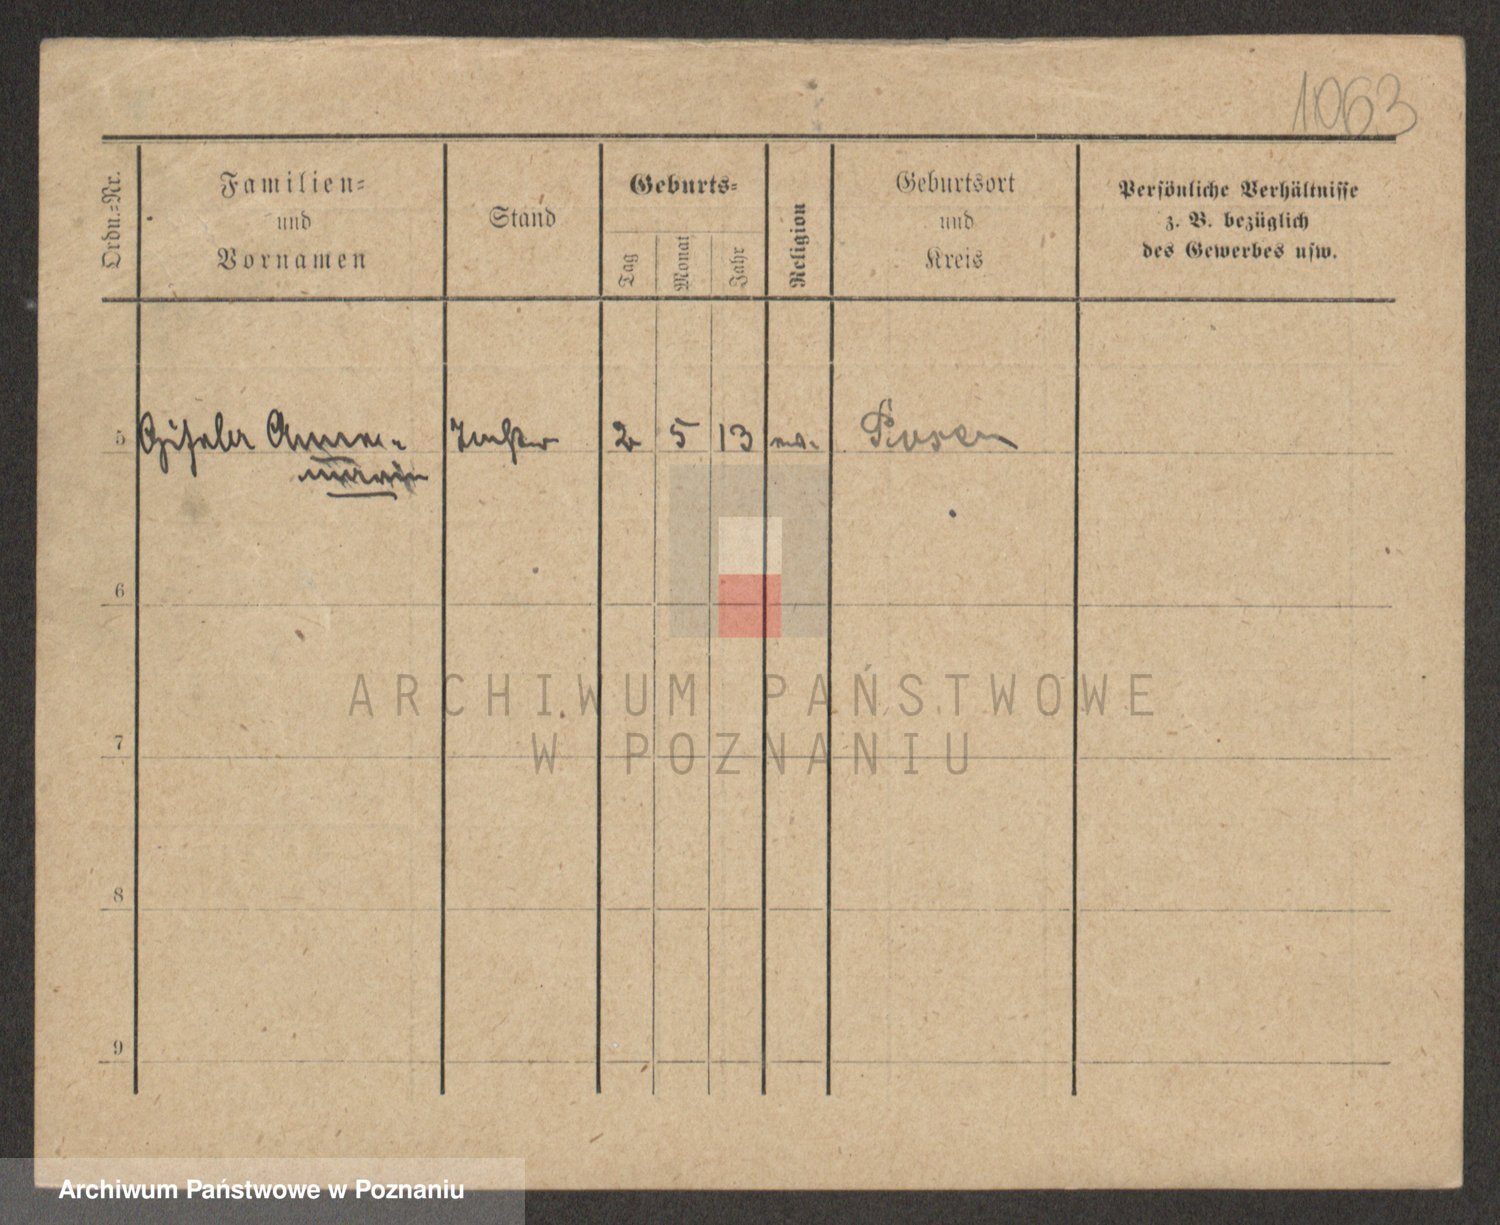 1063
Ordn.-Nr.
Familien-
und
Vornamen
Stand
Geburts-
Tag
Monat
Jahr
Religion
Geburtsort
und
Kreis
Persönliche Verhältnisse
z. B. bezüglich
des Gewerbes usw.
5 Gisela Anne- Tochter 2 5 13 ev. Posen
marie
6
7
8
9
ARCHIWUM PAŃSTWOWE
W POZNANIU
Archiwum Państwowe w Poznaniu